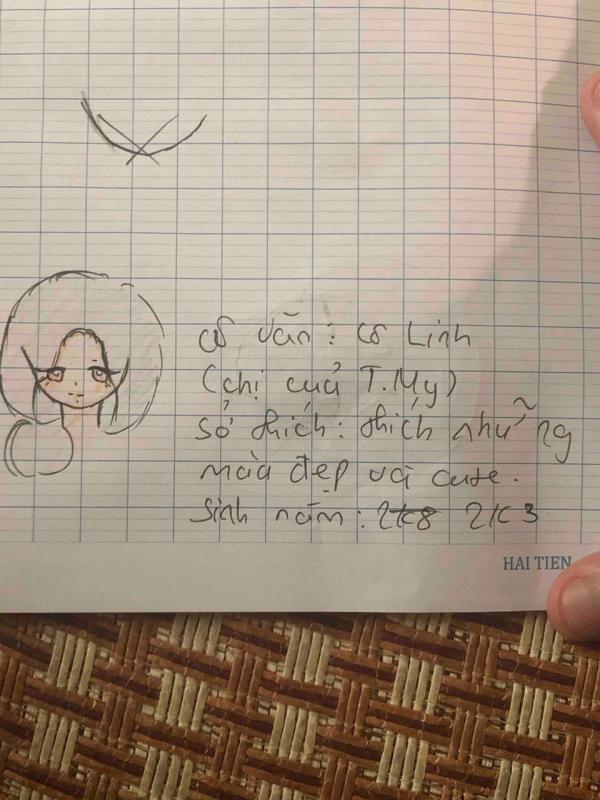 cô văn : cô Linh
(chị cuả T.My)
sở thích : thích những
màu đẹp và cute.
Sinh năm : 2k8 2k3
HAI TIEN